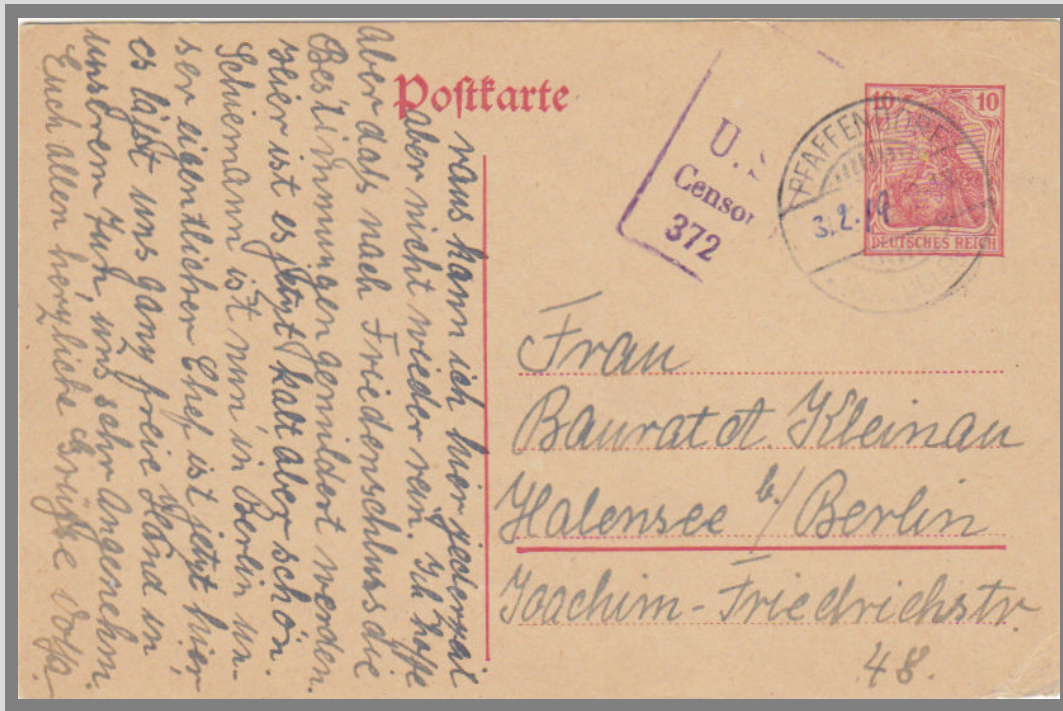 Postkarte
U.S.
Censor
372
10 10
PFAFFENDORF
3.2.19
DEUTSCHES REICH
Frau
Baurat A Kleinau
Halensee b/Berlin
Joachim-Friedrichstr.
48.
raus kann ich hier jederzeit
aber nicht wieder rein. Ich hoffe
aber daß nach Friedensschluss die
Bestimmungen gemildert werden.
Hier ist es jetzt kalt aber schön.
Schiemann ist nun in Berlin un-
ser eigentlicher Chef ist jetzt hier
es läßt uns ganz freie Hand in
unsrem Tun, uns sehr angenehm.
Euch allen herzliche Grüße